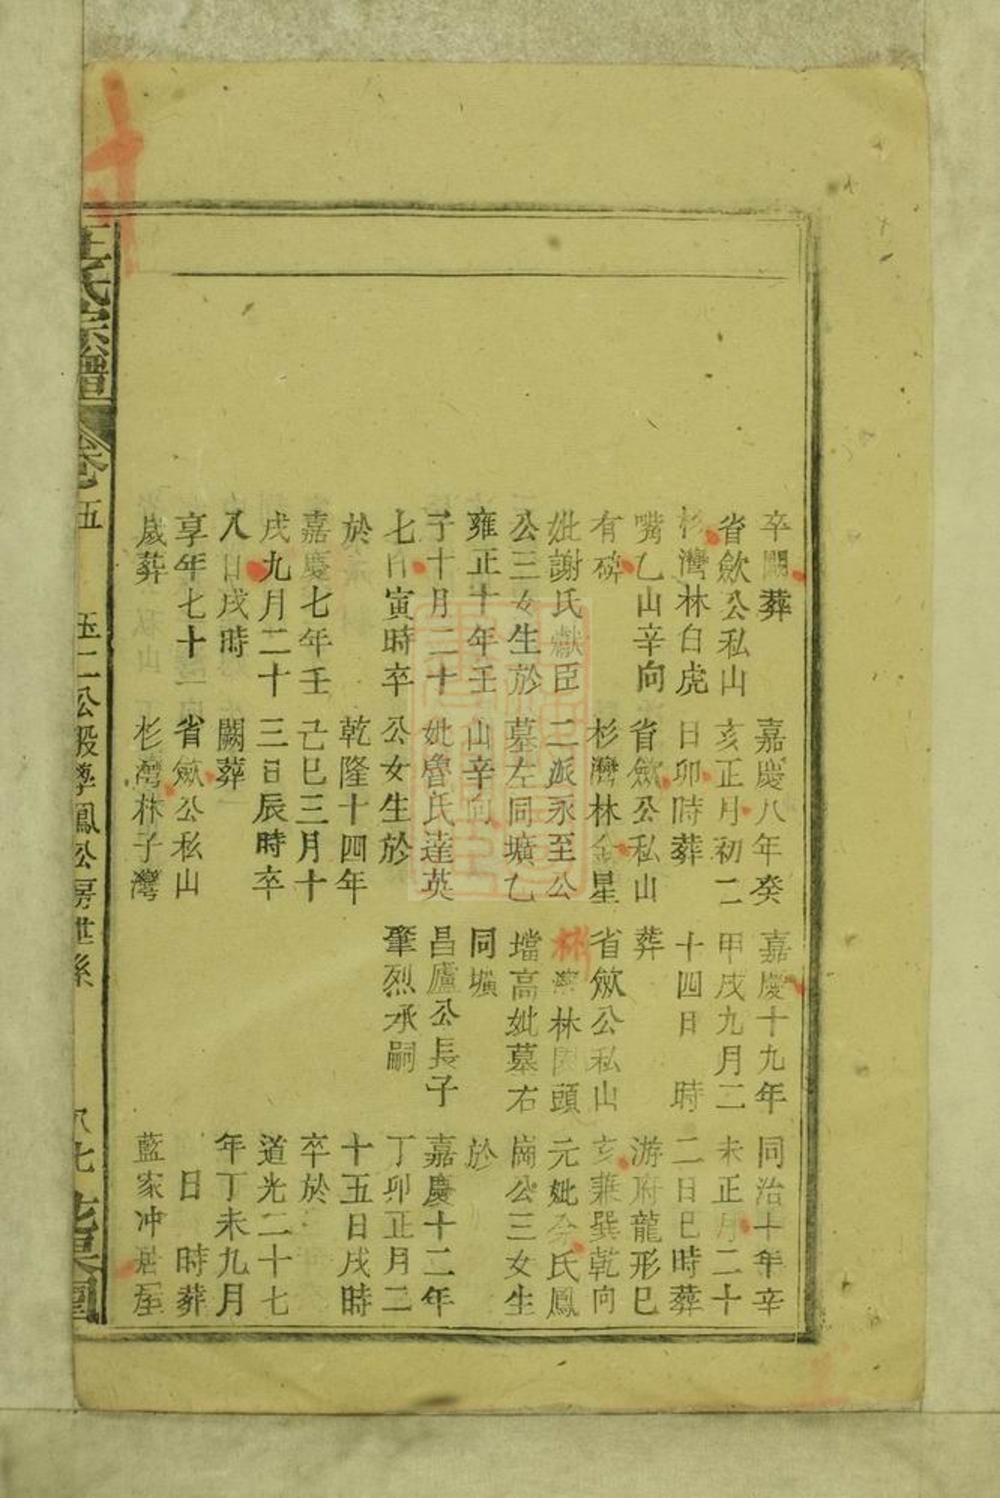 卒闕葬
省歛公私山
杉灣林白虎
嘴乙山辛向
有碑
妣謝氏獻臣
公三女生於
雍正十年壬
子十月二十
七日寅時卒
於
嘉慶七年壬
戌九月二十
八日戌時
享年七十一
歲葬
嘉慶八年癸
亥正月初二
日卯時葬
省歛公私山
杉灣林金星
二派永至公
墓左同壙乙
山辛向
妣魯氏達英
公女生於
乾隆十四年
己巳三月十
三日辰時卒
闕葬
省歛公私山
杉灣林子灣
嘉慶十九年
甲戌九月二
十四日 時
葬
省歛公私山
灣林頭
壋高妣墓右
同壙
昌廬公長子
肇烈承嗣
同治十年辛
未正月二十
二日巳時葬
游府龍形巳
亥兼巽乾向
元妣余氏鳳
崗公三女生
於
嘉慶十二年
丁卯正月二
十五日戌時
卒於
道光二十七
年丁未九月
日 時葬
藍家冲居屋
王氏宗譜
卷五
二公股學鳳公房世系
八七